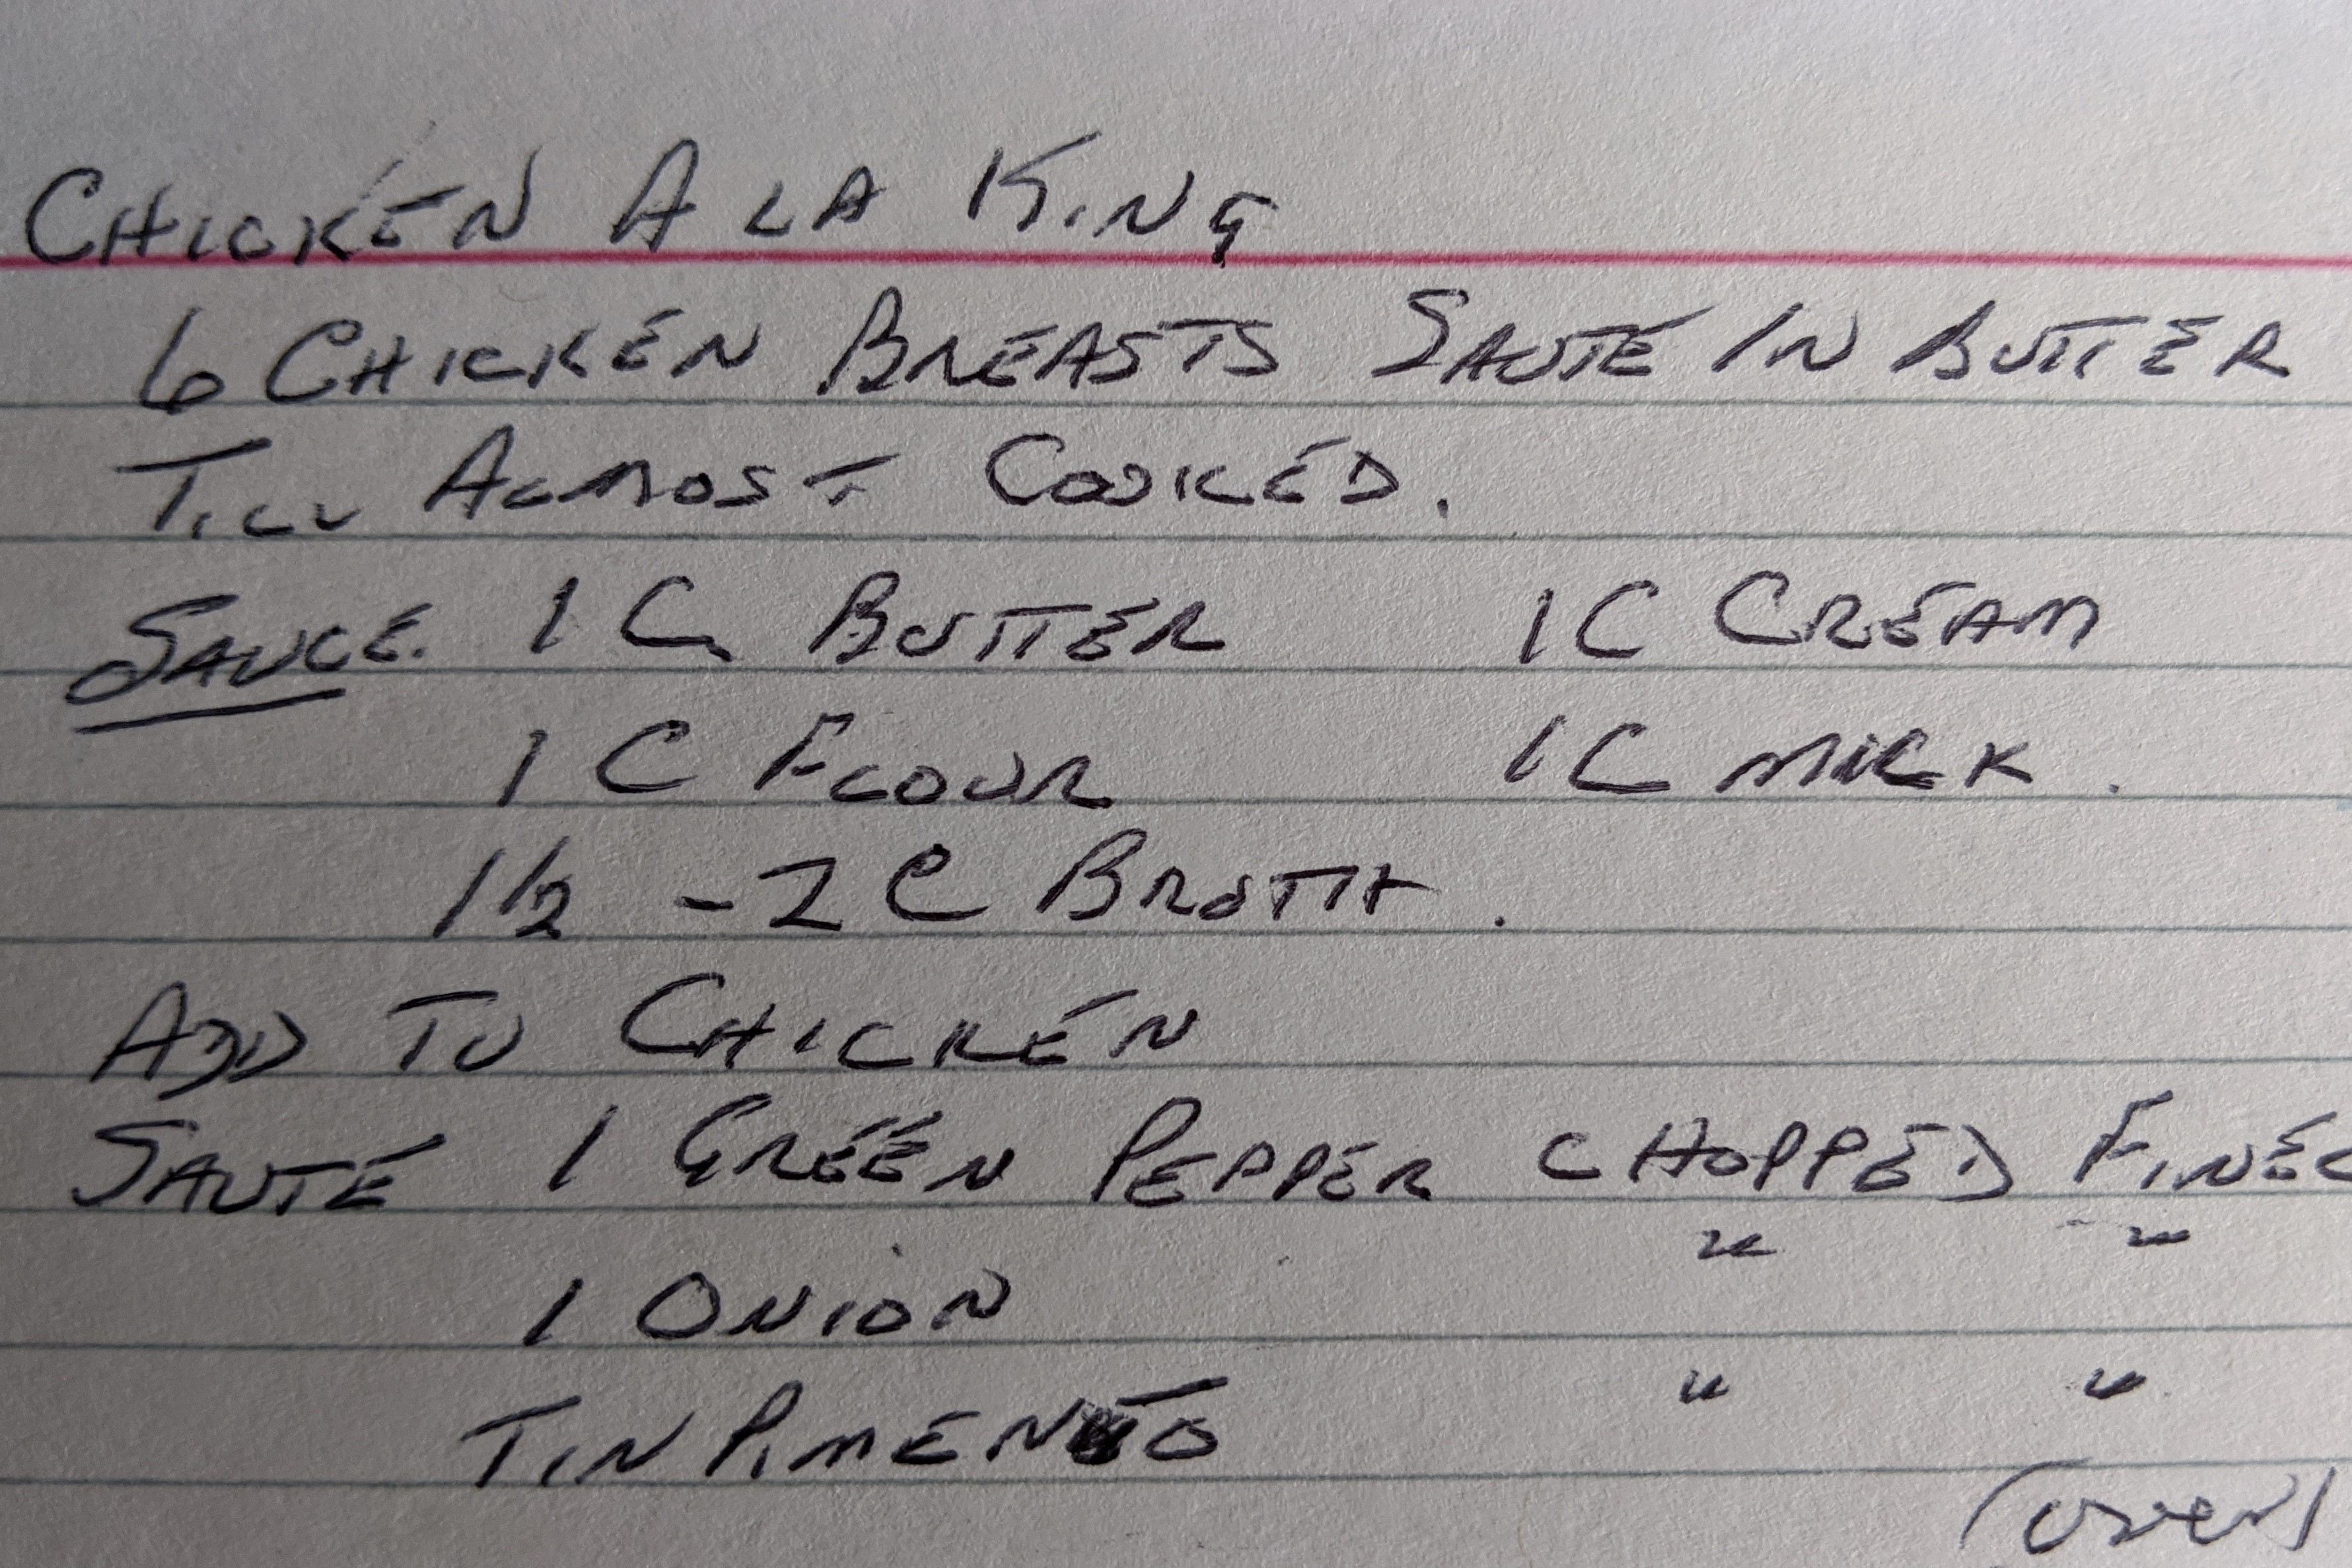 CHICKEN A LA KING
6 CHICKEN BREASTS SAUTÉ IN BUTTER
TILL ALMOST COOKED.
SAUCE. 1 C. BUTTER 1C CREAM
1 C FLOUR 1C MILK.
1 1/2 - 2 C BROTH.
ADD TO CHICKEN
SAUTÉ 1 GREEN PEPPER CHOPPED
" "
1 ONION
" "
TIN PIMENTO
(OVER)